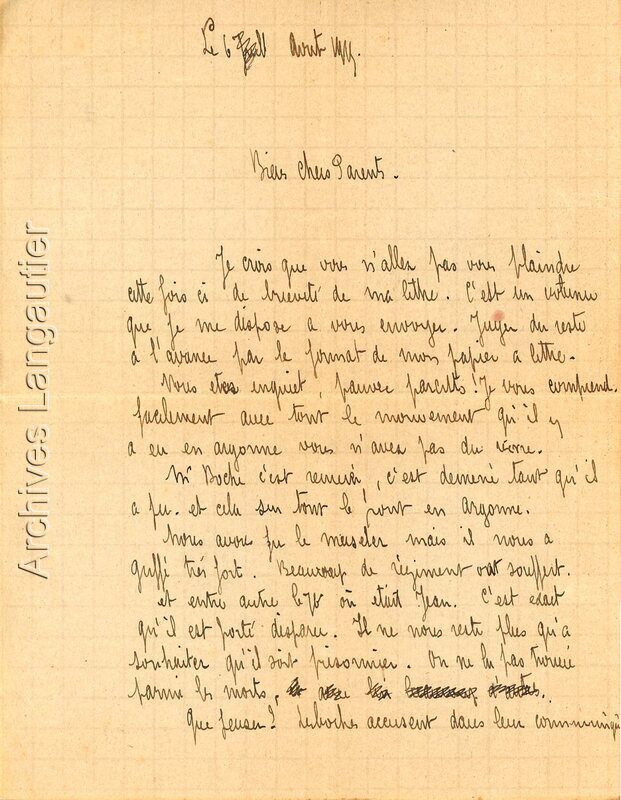 Le 6 Avril 1915.
Biens chers Parents.
Je crois que vous n'allez pas vous plaindre
cette fois ci de brieveté de ma lettre. C'est un
que je me dispose a vous envoyer. Juger du reste
à l'avance par le format de mon papier a lettre.
Vous etes inquiet, pauvre parents! Je vous comprend.
facilement avec tout le mouvement qu'il y
a eu en argonne vous n'avez pas du
Mr Boche c'est remué, c'est demené tant qu'il
a pu. et cela sur tout le front en Argonne.
Nous avons pu le museler mais il nous a
très fort. Beaucoup de régiment ont souffert.
et entre autre le 76 où était Jean. C'est exact
qu'il est porté disparu. Il ne nous reste plus qu'a
souhaiter qu'il soit prisonnier. On ne la pas trouvé
parmi les morts,
Que penser? Les boches accusent dans leur communiqué
Archives Langautier